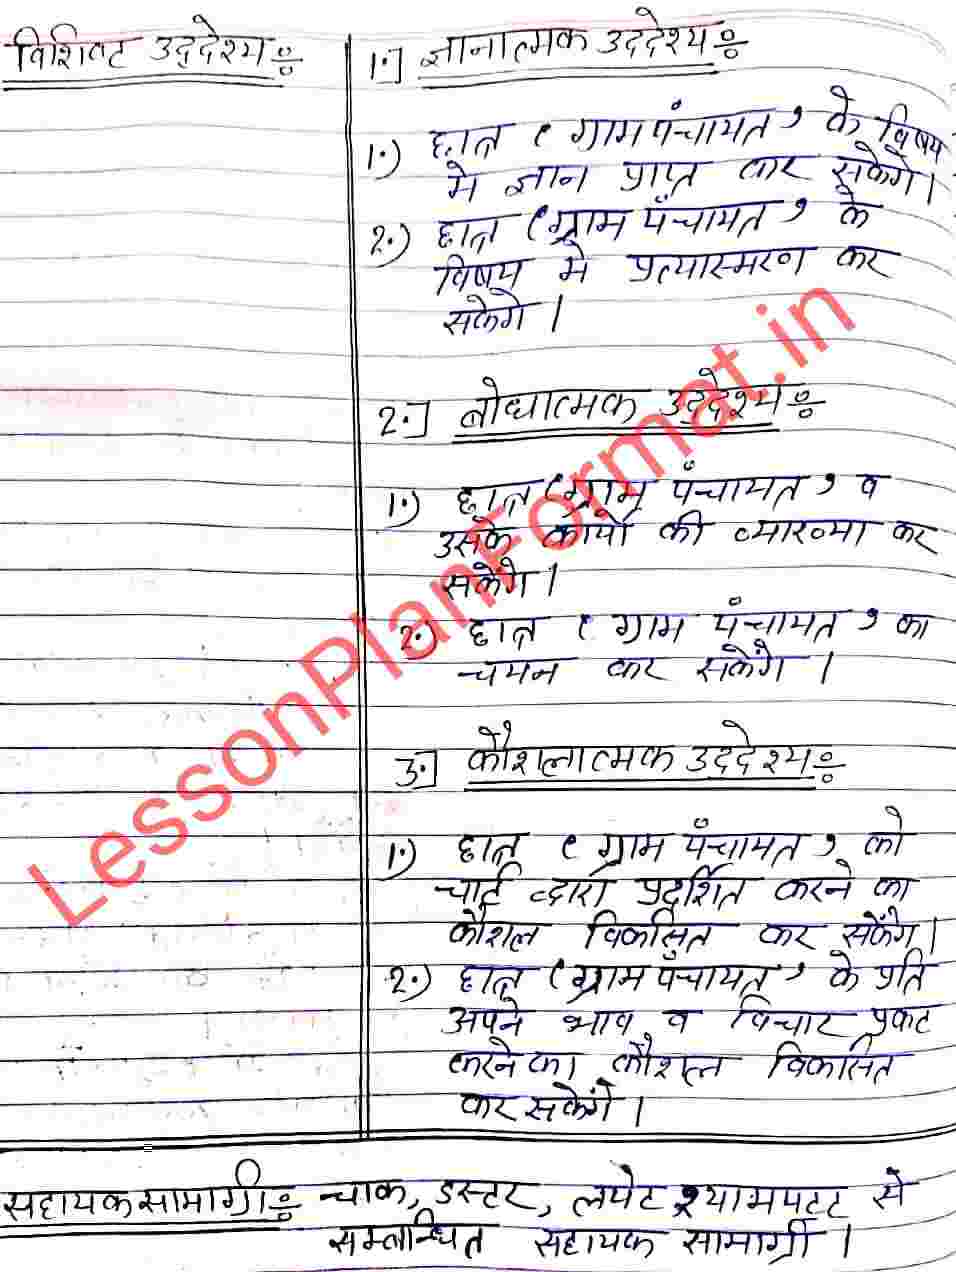 विशिष्ट उद्देश्यः
1.] ज्ञानात्मक उद्देश्यः
1.) छात्र 'ग्राम पंचायत' के विषय
मे ज्ञान प्राप्त कर सकेंगे।
2.) छात्र 'ग्राम पंचायत' के
विषय मे प्रत्यास्मरण कर
सकेगे।
2.] बोधात्मक उद्देश्यः
1.) छात्र 'ग्राम पंचायत' व
उसके कार्यो की व्याख्या कर
सकेंगे।
2.) छात्र 'ग्राम पंचायत' का
चयन कर सकेंगे।
3.] कौशलात्मक उद्देश्यः
1.) छात्र 'ग्राम पंचायत' को
चार्ट द्वारा प्रदर्शित करने का
कौशल विकसित कर सकेंगे।
2.) छात्र 'ग्राम पंचायत' के प्रति
अपने भाव व विचार प्रकट
करने का कौशल विकसित
कर सकेंगे।
सहायक सामाग्रीः चाक, डस्टर, लपेट श्यामपटट से
सम्बन्धित सहायक सामाग्री।
LessonPlanFormat.in